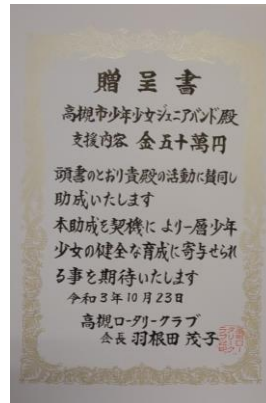 贈呈書
高槻市少年少女ジュニアバンド殿
支援内容 金五十萬円
頭書のとおり貴殿の活動に賛同し
助成いたします
本助成を契機により一層少年
少女の健全な育成に寄与せられ
る事を期待いたします
令和3年10月23日
高槻ロータリークラブ
会長 羽根田 茂子